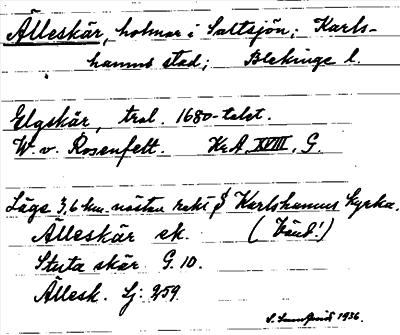 Älleskär, holmar i Saltsjön; Karls-
hamns stad; Blekinge l.
Elgskär, trol. 1680-talet.
W. v. Rosenfelt. KrA XVIII, G.
Läge 3,6 km. nästan rakt S Karlshamns kyrka.
Älleskär ek. (Känd!)
Stuta skär G. 10.
Ällesk. Sj: 259.
1936.